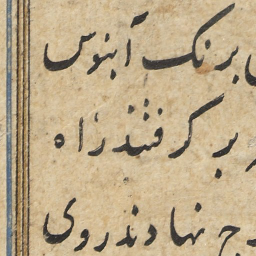 برنک آبنوس
بر کرفتند راه
نهادند روی